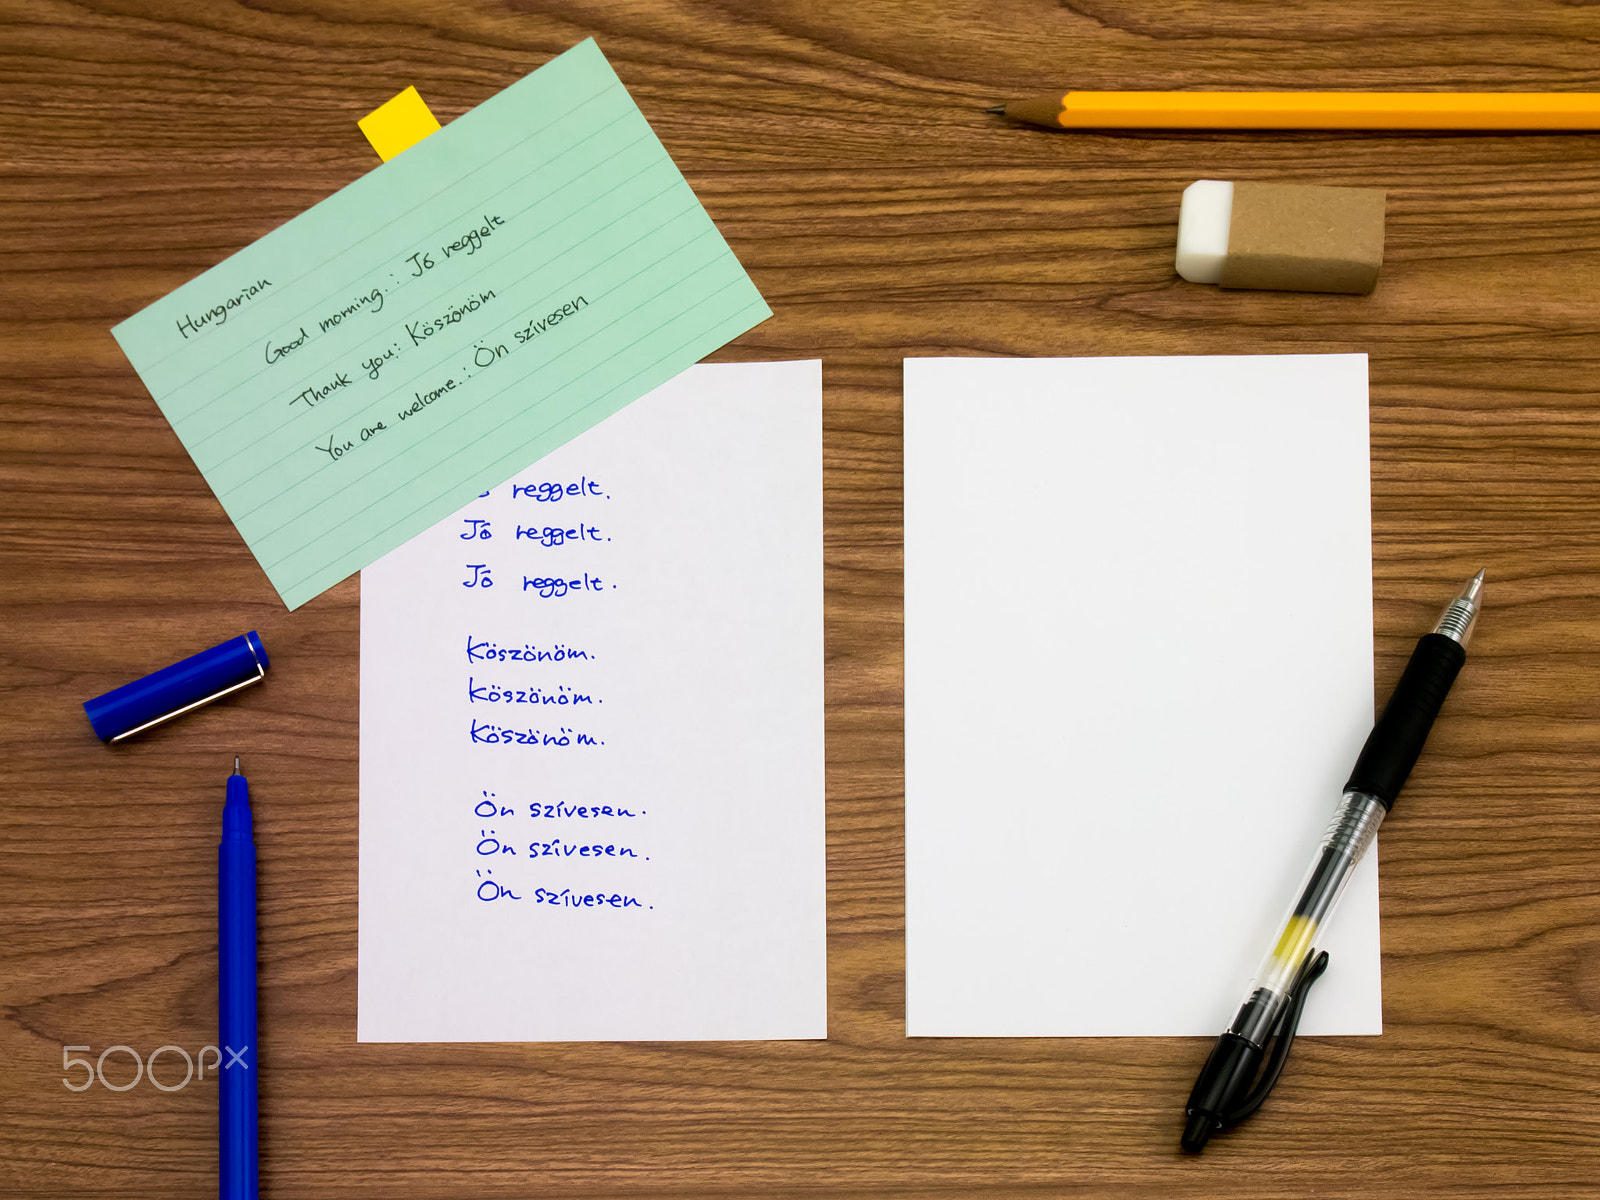 Hungarian
Good morning.: Jó reggelt
Thank you: Köszönöm
You are welcome.: Ön szívesen
reggelt.
Jó reggelt.
Jó reggelt.
Köszönöm.
Köszönöm.
Köszönöm.
Ön szívesen.
Ön szívesen.
Ön szívesen.
500px